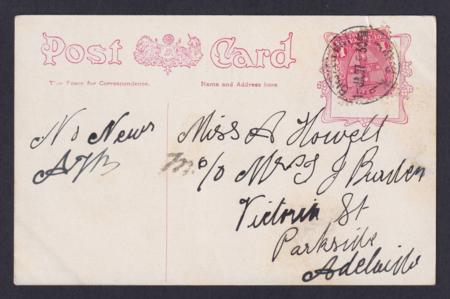 Post Card
This Space for Correspondence.
Name and Address here
No News
Miss A Howell
c/o Mrs J
Victoria St
Parkside
Adelaide